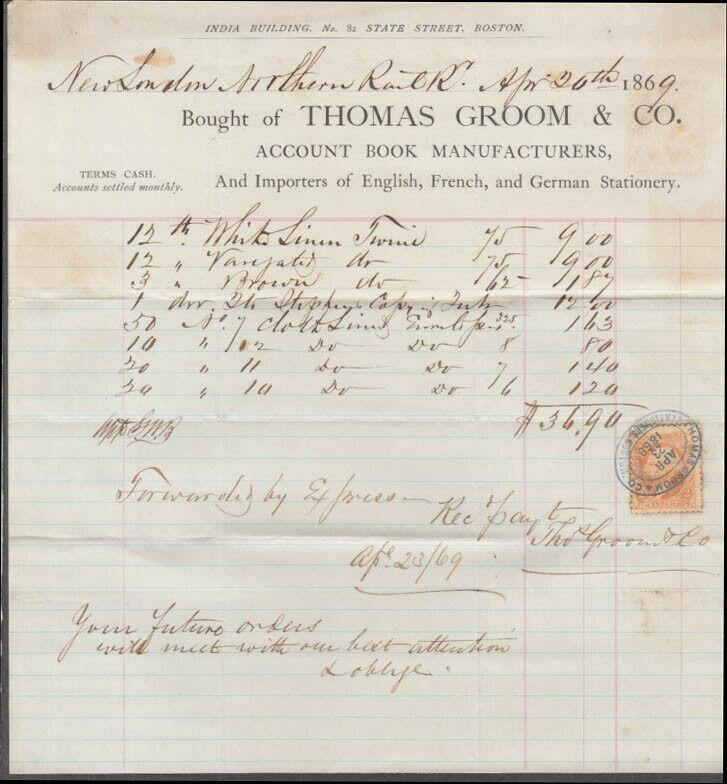 INDIA BUILDING, No. 82 STATE STREET, BOSTON.
New London Northern Rail Rd. Apr 20th 1869.
Bought of THOMAS GROOM & CO.
ACCOUNT BOOK MANUFACTURERS,
TERMS CASH.
Accounts settled monthly.
And Importers of English, French, and German Stationery.
12 th. White Linen Twine 75 9 00
12 " Varigated do 75 9 00
3 " Brown do 62 1 87
1 doz. Qts Stephens Copy'g Ink 12 00
50 No. 7 Cloth Lined Envelopes 325 1 63
10 " 12 Do Do 8 80
20 " 11 Do Do 7 1 40
20 " 10 Do Do 6 1 20
$36.90
Forwarded by Express
Rec'd payt
Thos Groom & Co
Apl. 23/69
Your future orders
will meet with our best attention
& oblige.
THOMAS GROOM & CO. STATIONERS BOSTON
APR
23
1869